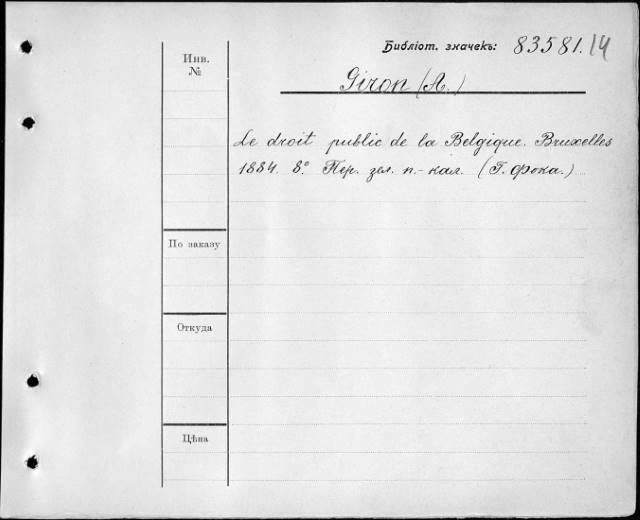 Библіот. значекъ: 83581.14
Инв.
№
Giron (A.)
Le droit public de la Belgique. Bruxelles
1884. 8º. Пер. зел. п.-кал. (Г. Фока.)
По заказу
Откуда
Цѣна